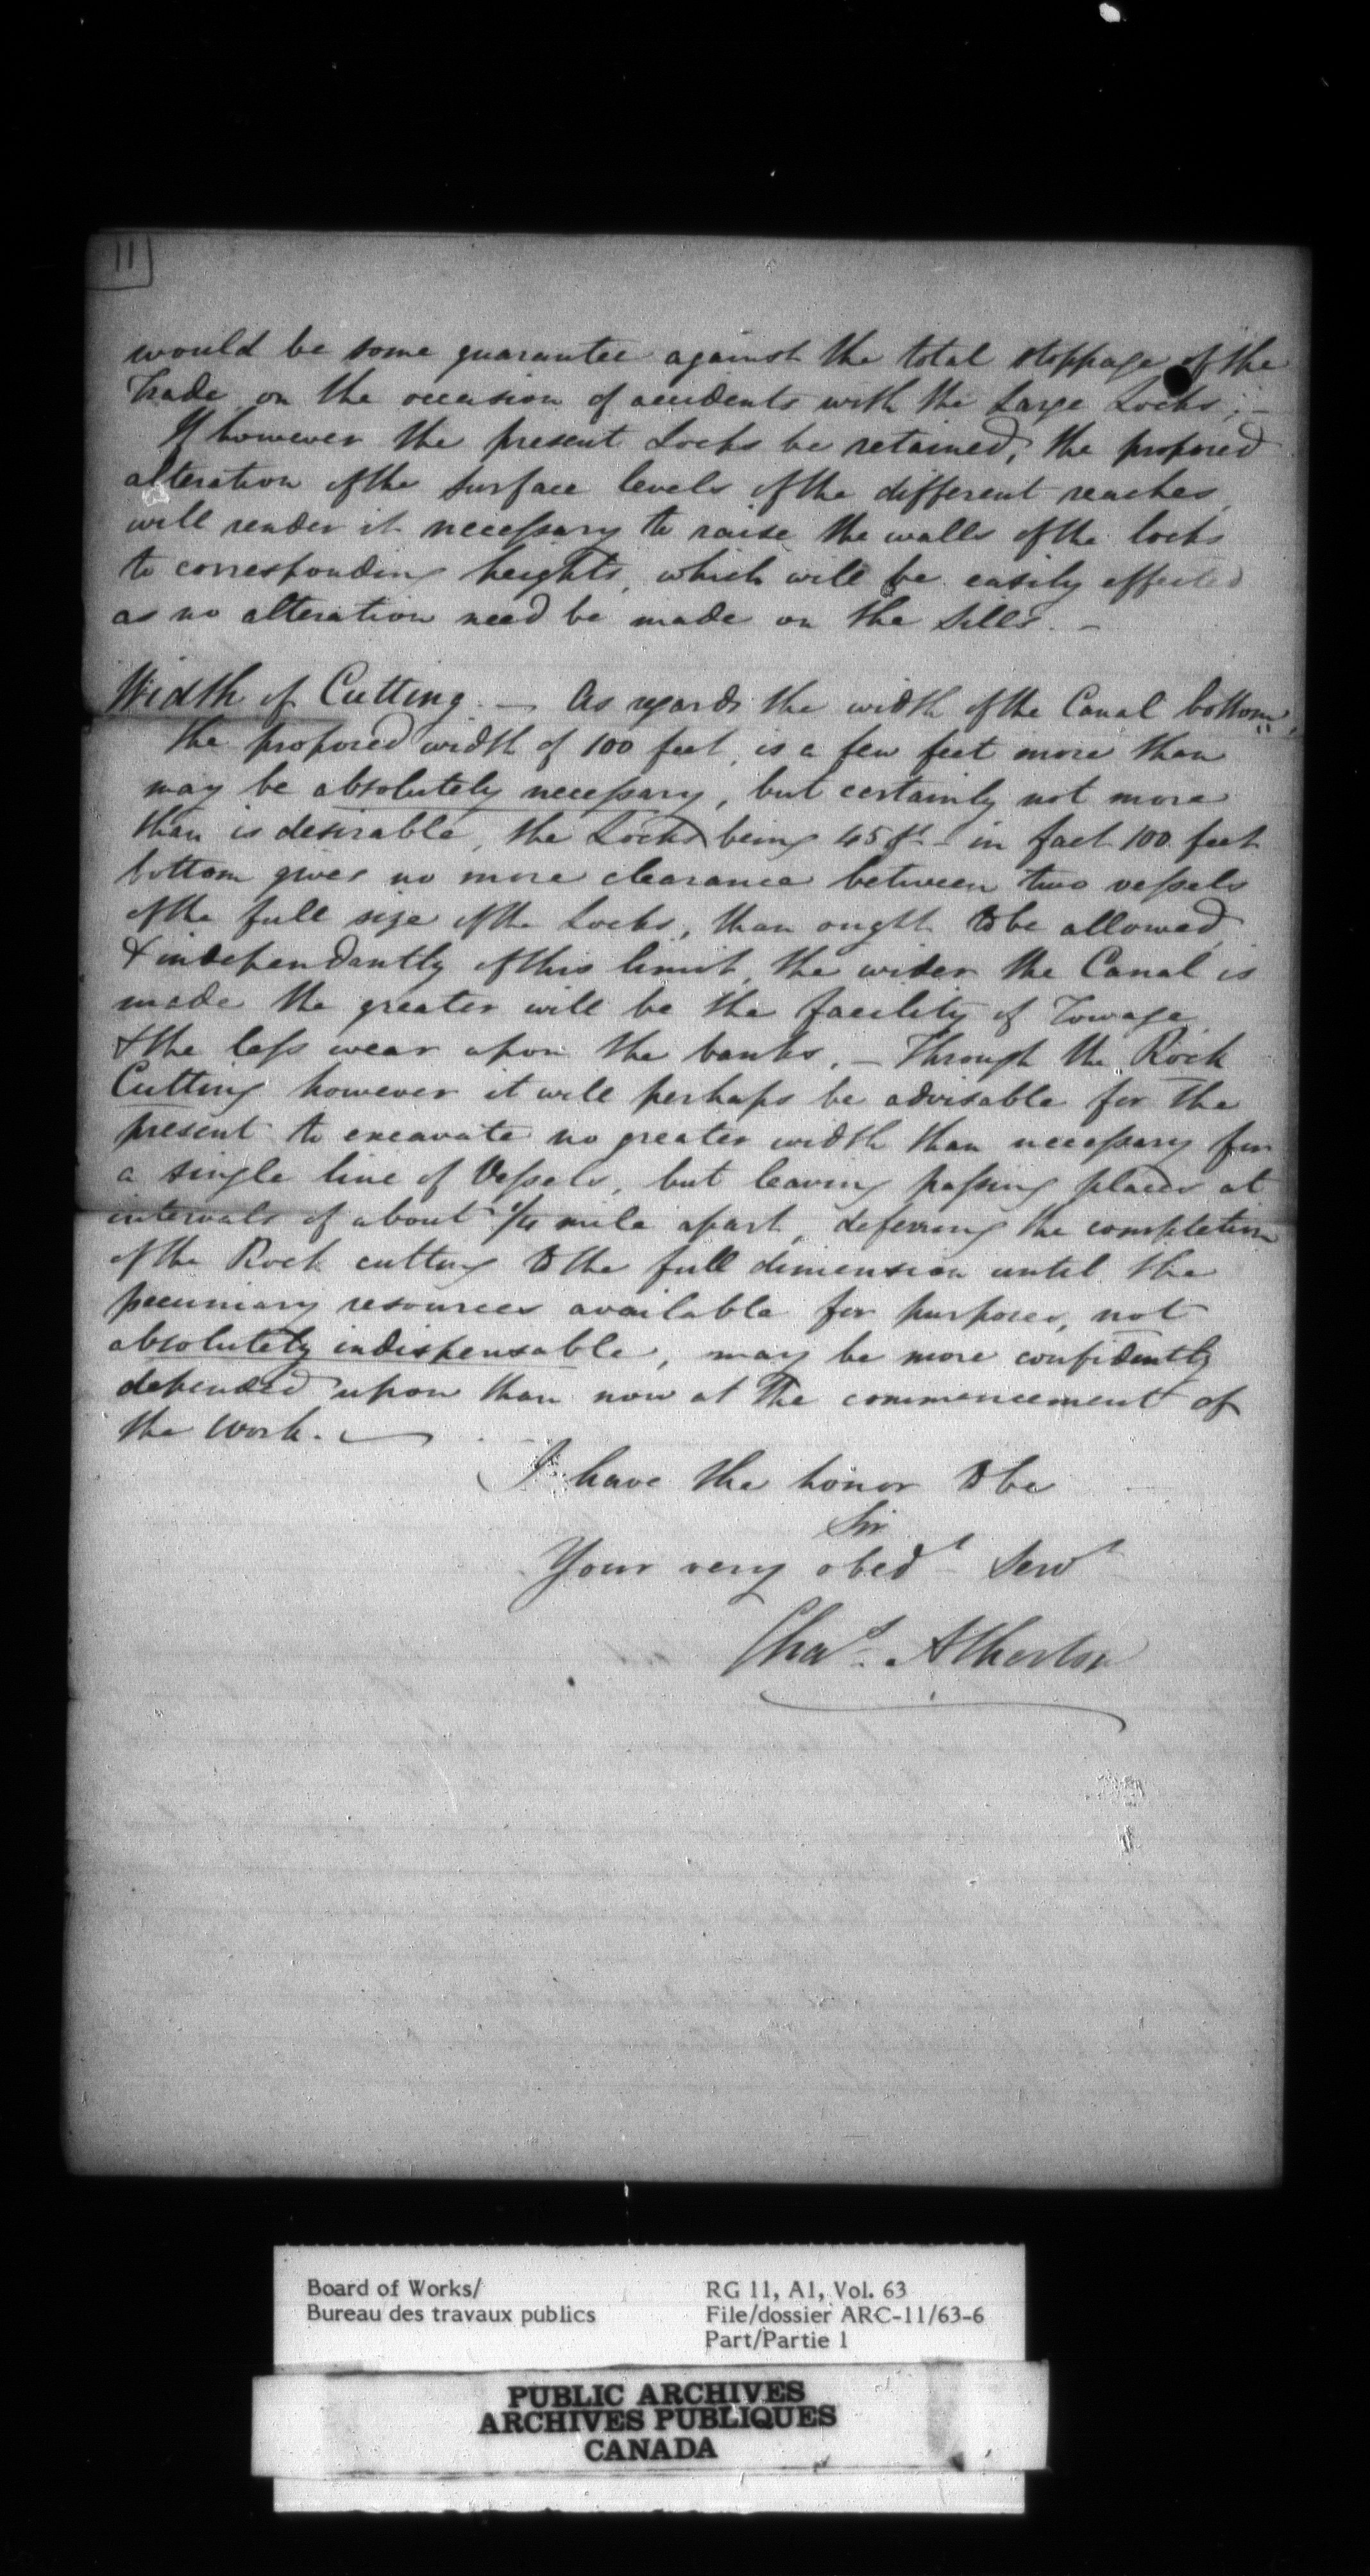 11
would be some guarantee against the total stoppage of the
Trade on the occasion of accidents with the Large Locks; -
If however the present Locks be retained, the proposed
alteration of the surface levels of the different reaches,
will render it necessary to raise the walls of the locks
to corresponding heights, which will be easily effected
as no alteration need be made on the Sills. -
Width of Cutting. - As regards the width of the Canal bottom,
the proposed width of 100 feet, is a few feet more than
may be absolutely necessary, but certainly not more
than is desirable, the Locks being 45 ft - in fact 100 feet
bottom gives no more clearance between two vessels
of the full size of the Locks, than ought to be allowed,
& independantly of this limit, the wider the Canal is
made the greater will be the facility of Towage
& the less wear upon the banks. - Through the Rock
Cutting however it will perhaps be advisable for the
present to excavate no greater width than necessary for
a single line of Vessels, but leaving passing places at
intervals of about 1/4 mile apart, deferring the completion
of the Rock cutting to the full dimension until the
pecuniary resources available for purposes, not
absolutely indispensable, may be more confidently
depended upon than now at the commencement of
the Work. -
I have the honor to be
Sir
Your very obedt Servt
Chas. Atherton
Board of Works/
Bureau des travaux publics
RG 11, A1, Vol. 63
File/dossier ARC-11/63-6
Part/Partie 1
PUBLIC ARCHIVES
ARCHIVES PUBLIQUES
CANADA